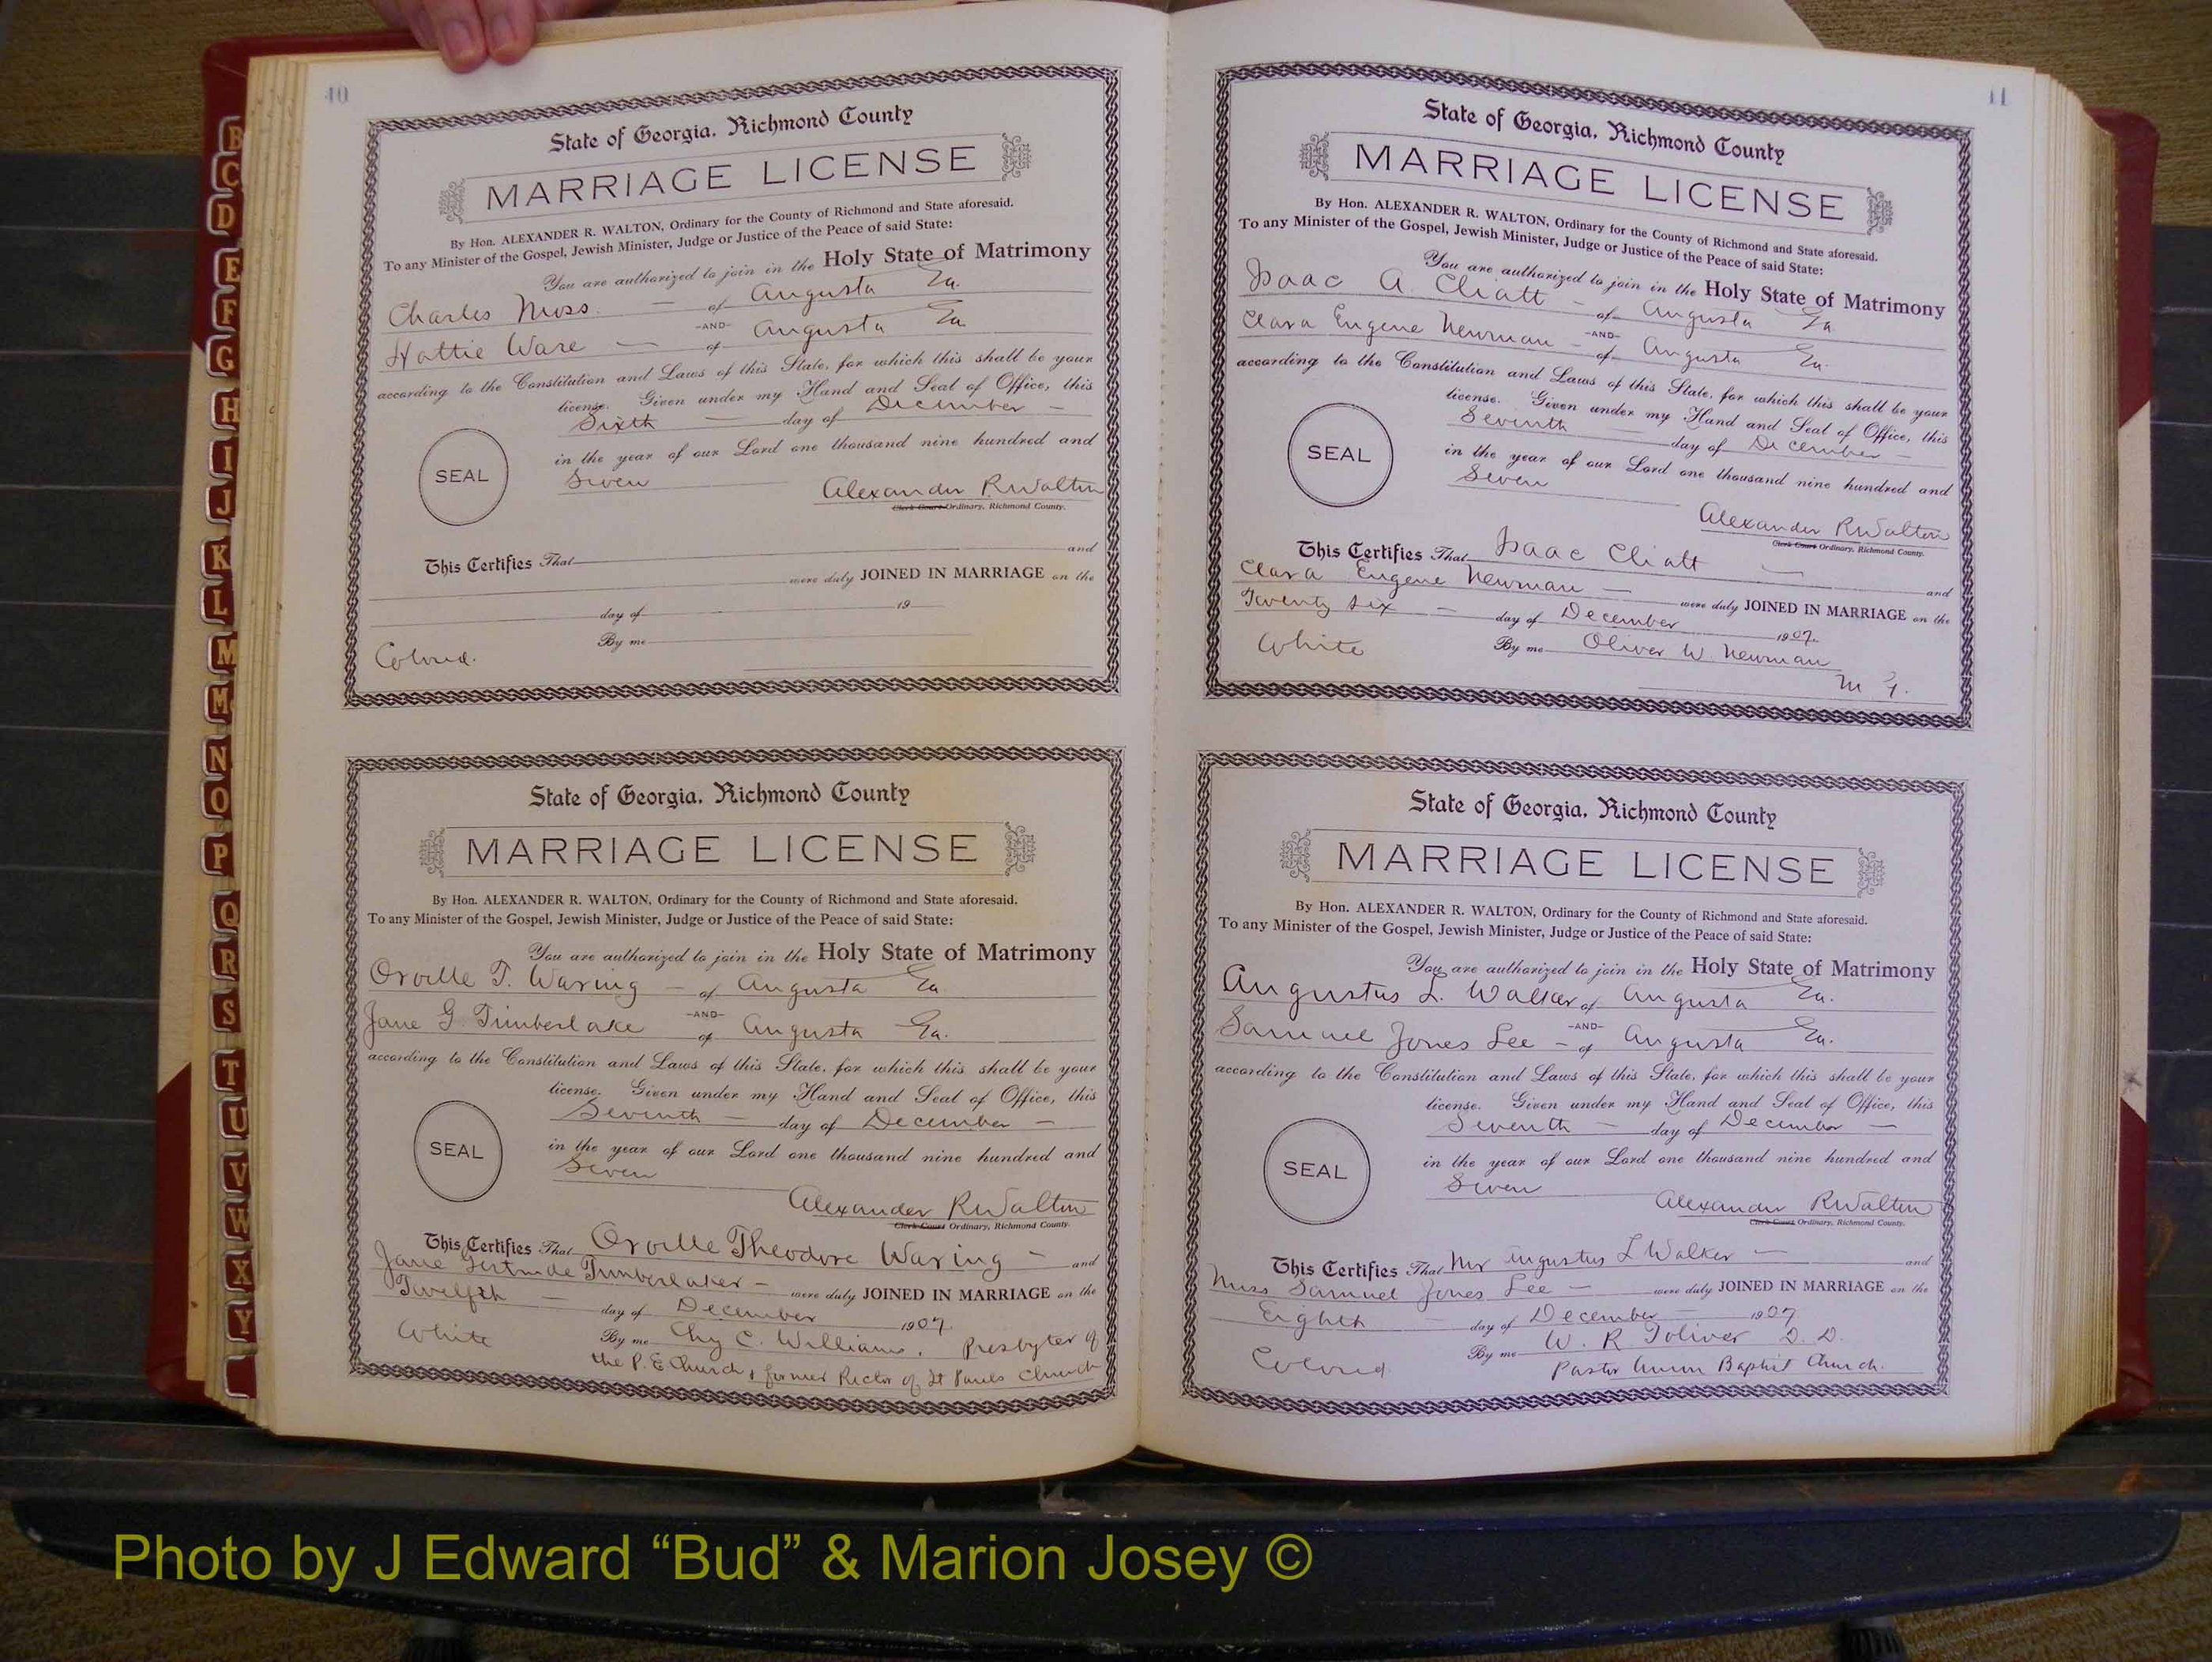 40
State of Georgia, Richmond County
MARRIAGE LICENSE
By Hon. ALEXANDER R. WALTON, Ordinary for the County of Richmond and State aforesaid.
To any Minister of the Gospel, Jewish Minister, Judge or Justice of the Peace of said State:
You are authorized to join in the Holy State of Matrimony
Charles Moss of Augusta Ga.
-AND-
Hattie Ware of Augusta Ga
according to the Constitution and Laws of this State, for which this shall be your
license. Given under my Hand and Seal of Office, this
Sixth day of December
in the year of our Lord one thousand nine hundred and
Seven
SEAL
Alexander R Walton
Clerk Court Ordinary, Richmond County.
This Certifies That and
were duly JOINED IN MARRIAGE on the
day of 19
By me
Colored.
State of Georgia, Richmond County
MARRIAGE LICENSE
By Hon. ALEXANDER R. WALTON, Ordinary for the County of Richmond and State aforesaid.
To any Minister of the Gospel, Jewish Minister, Judge or Justice of the Peace of said State:
You are authorized to join in the Holy State of Matrimony
Orville T. Waring of Augusta Ga
-AND-
Jane G. Timberlake of Augusta Ga.
according to the Constitution and Laws of this State, for which this shall be your
license. Given under my Hand and Seal of Office, this
Seventh day of December
in the year of our Lord one thousand nine hundred and
Seven
SEAL
Alexander R Walton
Clerk Court Ordinary, Richmond County.
This Certifies That Orville Theodore Waring and
Jane Gertrude Timberlake were duly JOINED IN MARRIAGE on the
Twelfth day of December 1907.
White
By me Chy C. Williams, Presbyter of
the P. E Church, former Rector of St Pauls Church
11
State of Georgia, Richmond County
MARRIAGE LICENSE
By Hon. ALEXANDER R. WALTON, Ordinary for the County of Richmond and State aforesaid.
To any Minister of the Gospel, Jewish Minister, Judge or Justice of the Peace of said State:
You are authorized to join in the Holy State of Matrimony
Isaac A. Cliatt of Augusta Ga.
-AND-
Clara Eugene Newman of Augusta Ga.
according to the Constitution and Laws of this State, for which this shall be your
license. Given under my Hand and Seal of Office, this
Seventh day of December
in the year of our Lord one thousand nine hundred and
Seven
SEAL
Alexander R Walton
Clerk Court Ordinary, Richmond County.
This Certifies That Isaac Cliatt and
Clara Eugene Newman were duly JOINED IN MARRIAGE on the
Twenty six day of December 1907.
White
By me Oliver W. Newman
M G.
State of Georgia, Richmond County
MARRIAGE LICENSE
By Hon. ALEXANDER R. WALTON, Ordinary for the County of Richmond and State aforesaid.
To any Minister of the Gospel, Jewish Minister, Judge or Justice of the Peace of said State:
You are authorized to join in the Holy State of Matrimony
Augustus L. Walker of Augusta Ga.
-AND-
Samuel Jones Lee of Augusta Ga.
according to the Constitution and Laws of this State, for which this shall be your
license. Given under my Hand and Seal of Office, this
Seventh day of December
in the year of our Lord one thousand nine hundred and
Seven
SEAL
Alexander R Walton
Clerk Court Ordinary, Richmond County.
This Certifies That Mr Augustus L Walker and
Miss Samuel Jones Lee were duly JOINED IN MARRIAGE on the
Eighth day of December 1907
Colored
By me W. R Toliver D. D.
Pastor Union Baptist Church.
B
C
D
E
F
G
H
I
J
K
L
M
Mc
N
O
P
Q
R
S
T
U
V
W
X
Y
Photo by J Edward “Bud” & Marion Josey ©